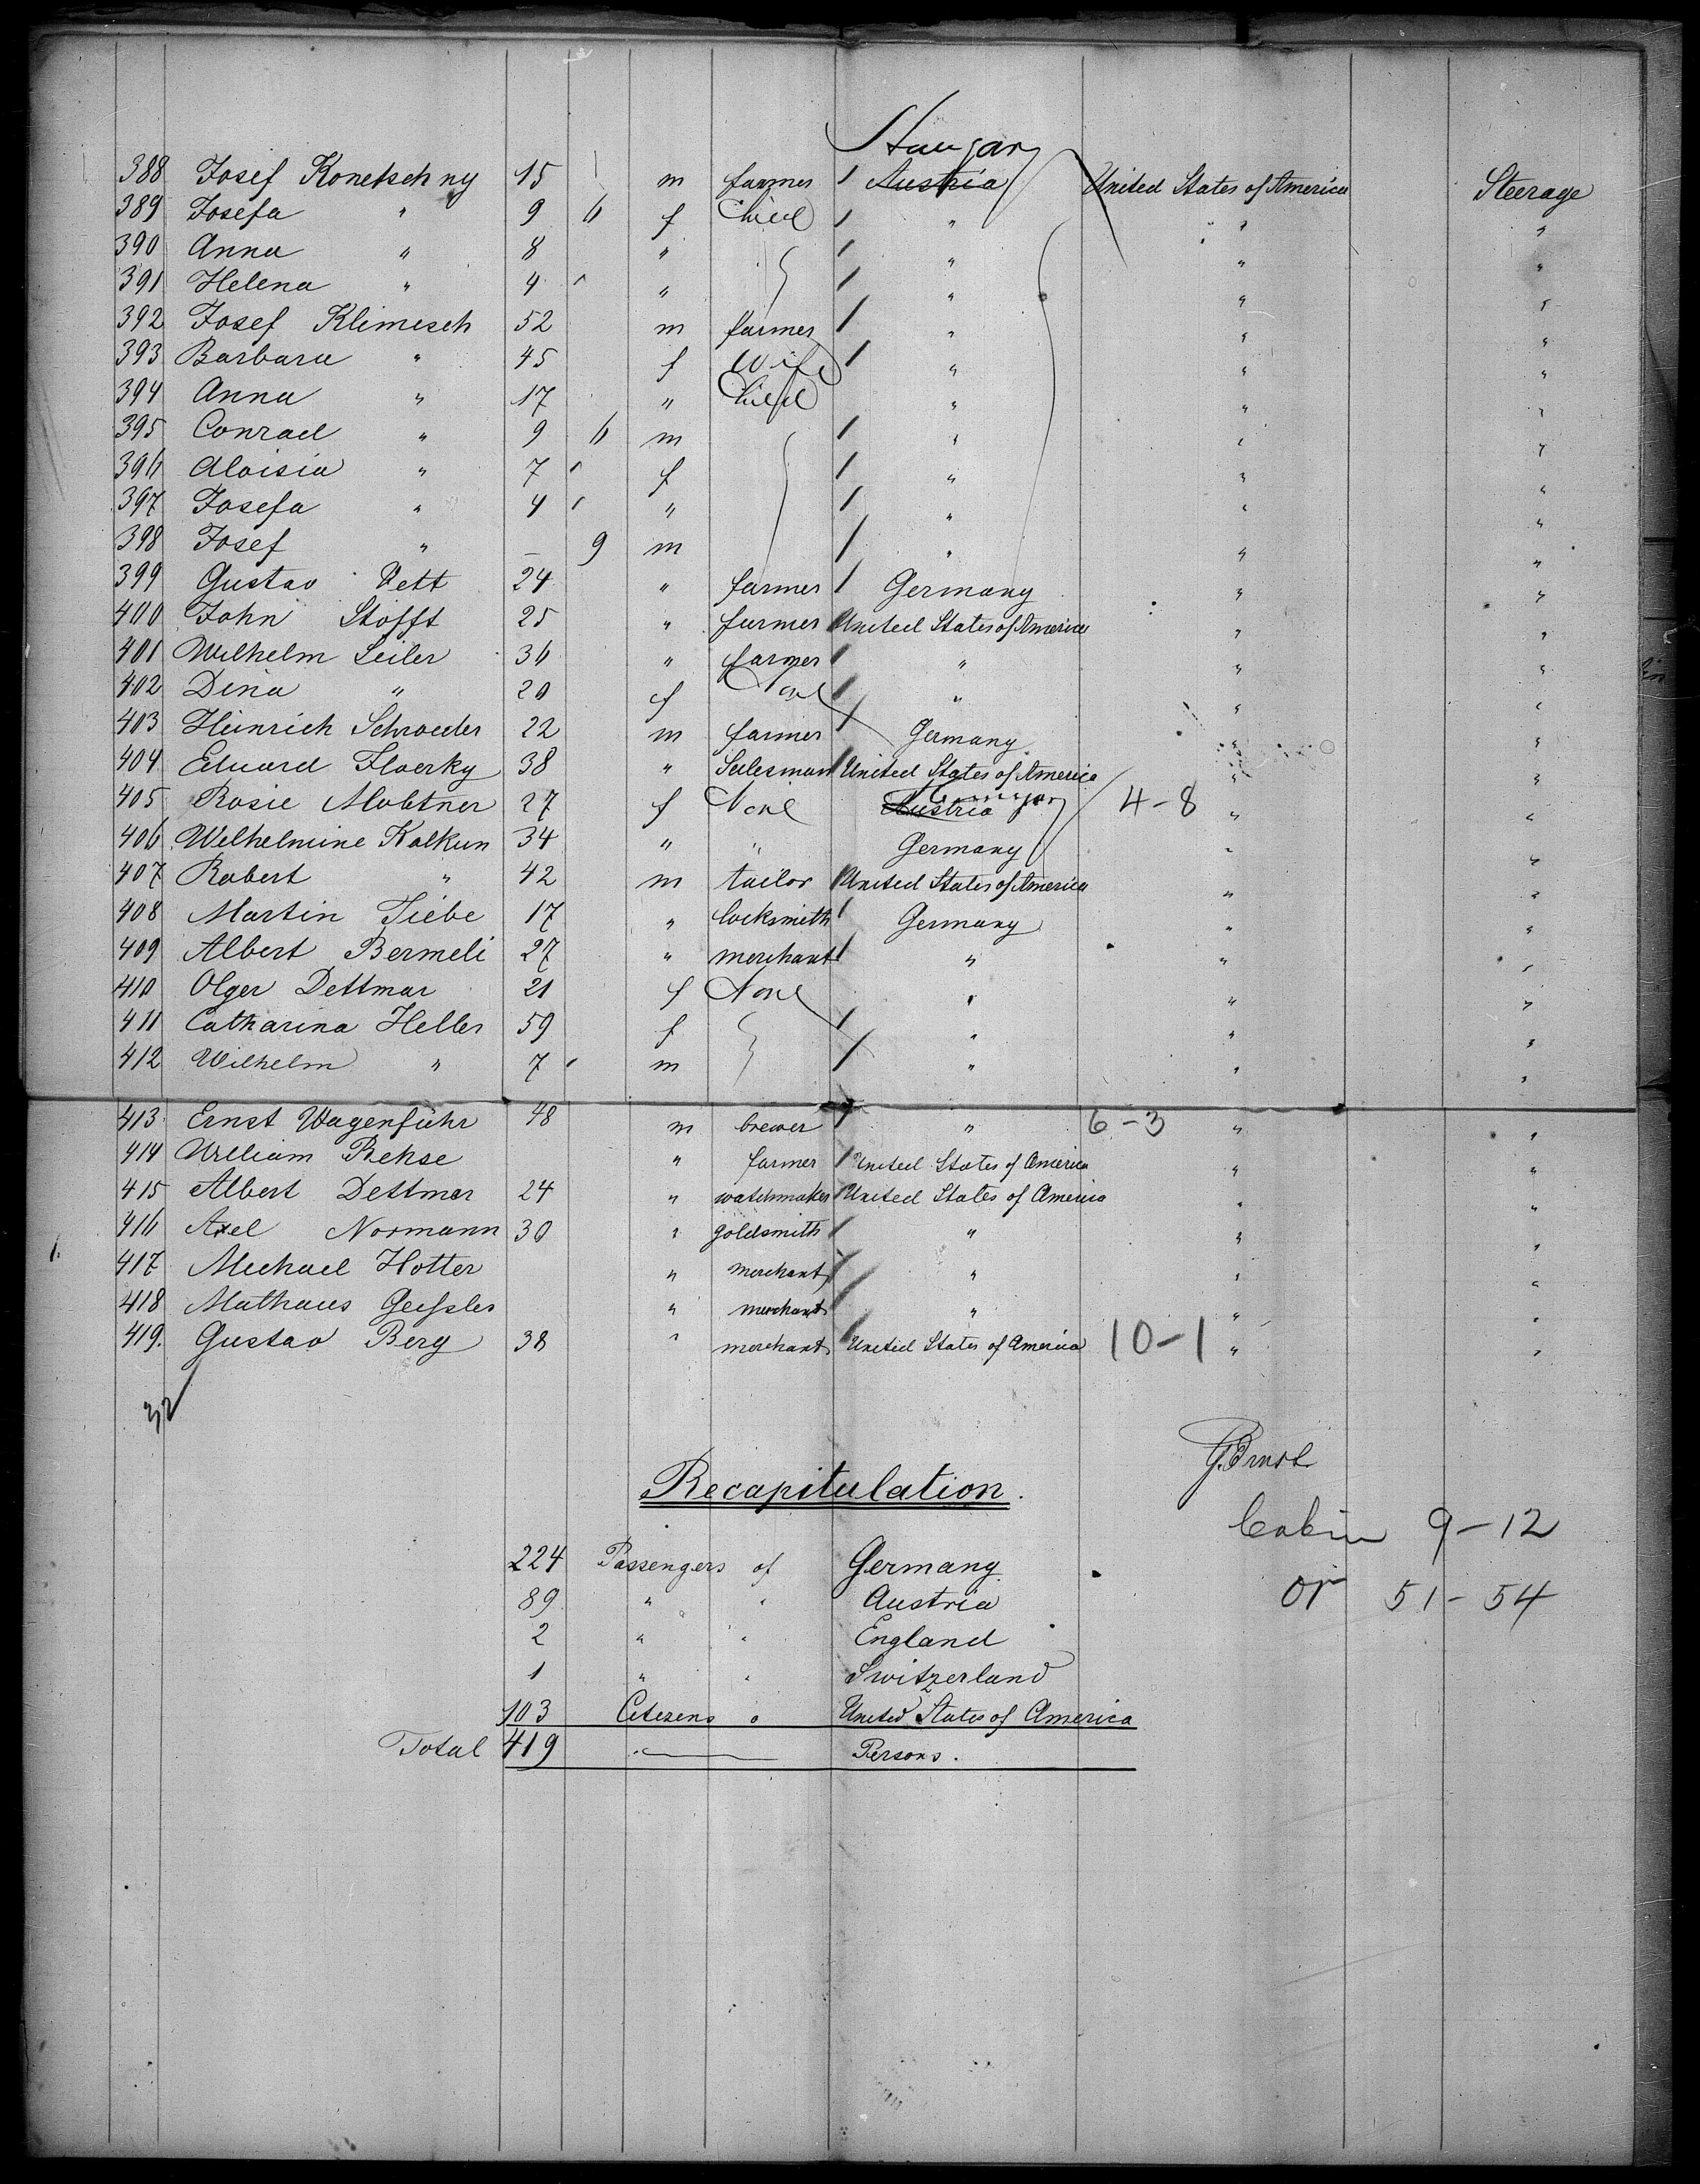 Hungary
388 Josef Konetschny 15 m farmer / Austria United States of America Steerage
389 Josefa " 9 6 f Child / " " "
390 Anna " 8 " / " " "
391 Helena " 4 " / " " "
392 Josef Klimesch 52 m farmer / " " "
393 Barbara " 45 f Wife / " " "
394 Anna " 17 " Child " " "
395 Conrad " 9 6 m / " " "
396 Aloisia " 7 f / " " "
397 Josefa " 4 " / " " "
398 Josef " — 9 m / " " "
399 Gustav Vett 24 " farmer / Germany " "
400 John Stofft 25 " farmer / United States of America " "
401 Wilhelm Seiler 36 " farmer / " " "
402 Dina " 20 f None / " " "
403 Heinrich Schroeder 22 m farmer / Germany " "
404 Eduard Floerky 38 " Salesman / United States of America " "
Hungary
405 Rosie 27 f None Austria 4-8 " "
406 Wilhelmine Kalkun 34 " " Germany " "
407 Robert " 42 m tailor / United States of America " "
408 Martin Tiebe 17 " locksmith / Germany " "
409 Albert Bermeli 27 " merchant / " " "
410 Olger Dettmar 21 f None " " "
411 Catharina Heller 59 f / " " "
412 Wilhelm " 7 m / " " "
413 Ernst Wagenführ 48 m brewer / " 6-3 " "
414 William Rehse " farmer / United States of America " "
415 Albert Dettmer 24 " watchmaker / United States of America " "
416 Axel Normann 30 " goldsmith / " " "
417 Michael Hotter " merchant / " " "
418 Mathaus Geissler " merchant / " " "
419. Gustav Berg 38 " merchant / United States of America 10-1 " "
32
G. Ernst
Recapitulation.
Cabin 9-12
224 Passengers of Germany
or 51-54
89 " " Austria
2 " " England
1 " " Switzerland
103 Citizens o United States of America
Total 419 Persons.